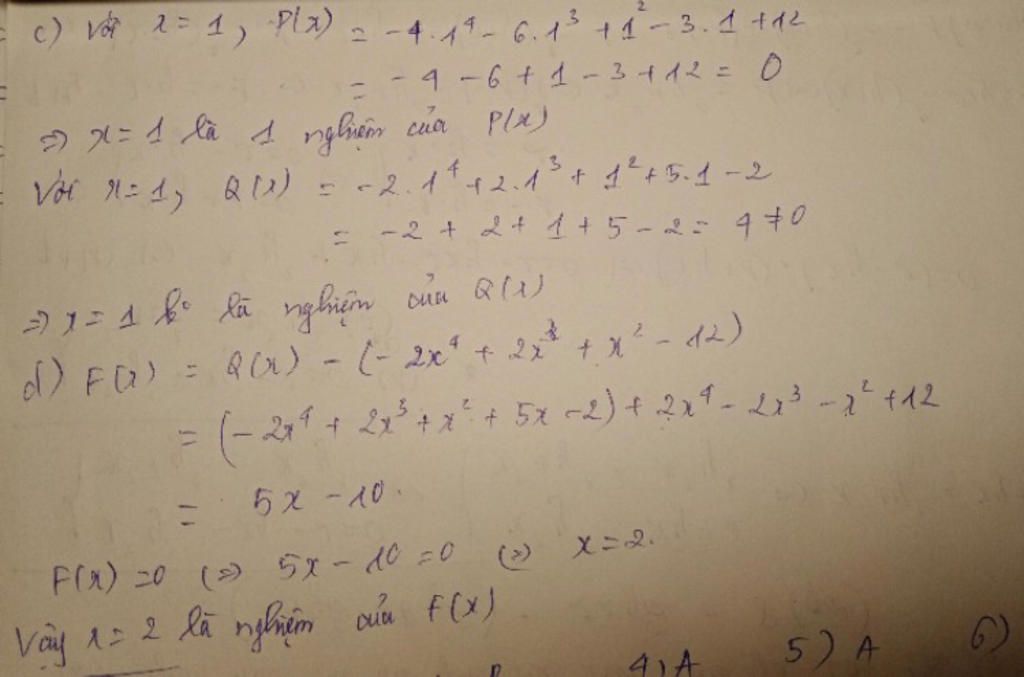 c) Với x = 1, P(x) = -4.1⁴ - 6.1³ + 1² - 3.1 + 12
= -4 - 6 + 1 - 3 + 12 = 0
=> x = 1 là 1 nghiệm của P(x)
Với x = 1, Q(x) = -2.1⁴ + 2.1³ + 1² + 5.1 - 2
= -2 + 2 + 1 + 5 - 2 = 4 ≠ 0
=> x = 1 k° là nghiệm của Q(x)
d) F(x) = Q(x) - (-2x⁴ + 2x³ + x² - 12)
= (-2x⁴ + 2x³ + x² + 5x - 2) + 2x⁴ - 2x³ - x² + 12
= 5x - 10.
F(x) = 0 <=> 5x - 10 = 0 <=> x = 2.
Vậy x = 2 là nghiệm của F(x)
4) A 5) A 6)